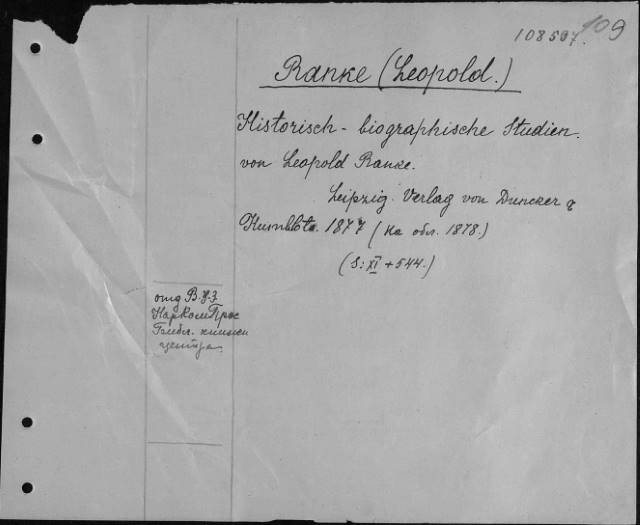 108507. 109
Ranke (Leopold.)
Historisch - biographische Studien.
von Leopold Ranke.
Leipzig. Verlag von Duncker &
Humblto. 1877 (на обл. 1878.)
(S: XI + 544.)
отд В.У.З
НаркомПрос
книжн
центра.